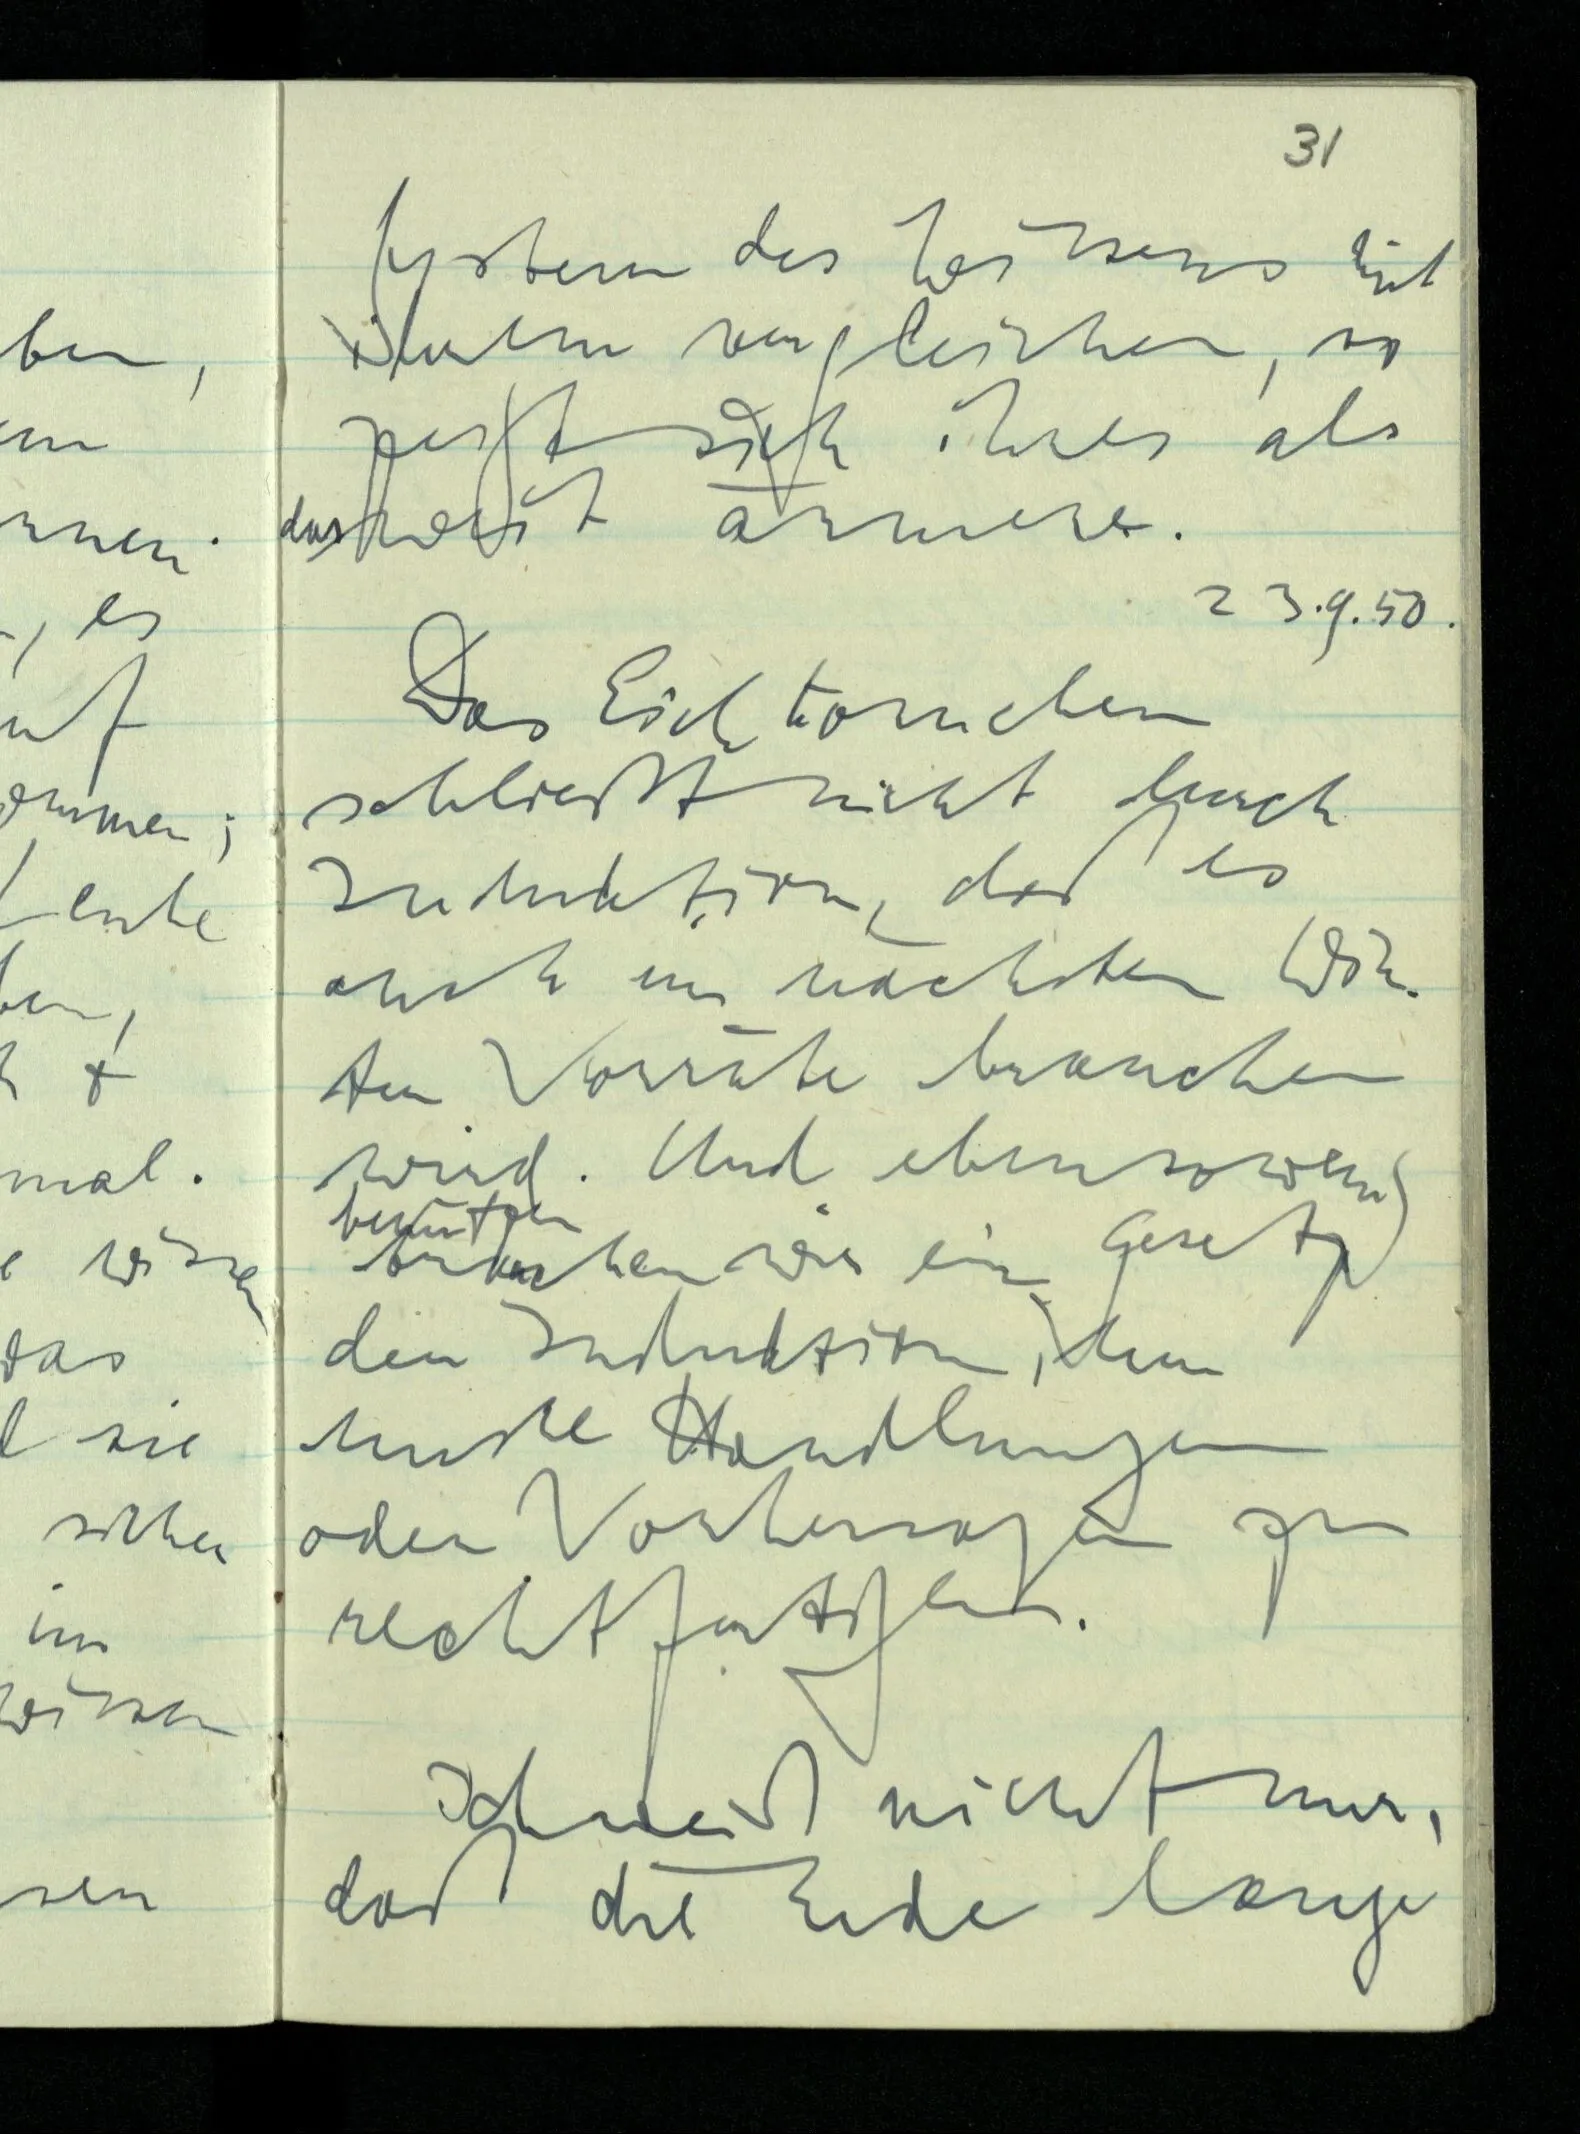 ben,
em
rnen
, es
auf
ommen;
Leute
ben,
h +
mal.
e wissen
das
d sie
sicher
im
wissen
sen
31
System des Wissens mit
ihrem vergleichen, so
zeigt sich ihres als
das weit ärmere.
23.9.50.
Das Eichhörnchen
schließt nicht durch
Induktion, daß es
auch im nächsten Win-
ter Vorräte brauchen
wird. Und ebensowenig
benützen
brauchen wir ein Gesetz
der Induktion, um
unsre Handlungen
oder Vorhersagen zu
rechtfertigen.
Ich weiß nicht nur,
daß die Erde lange